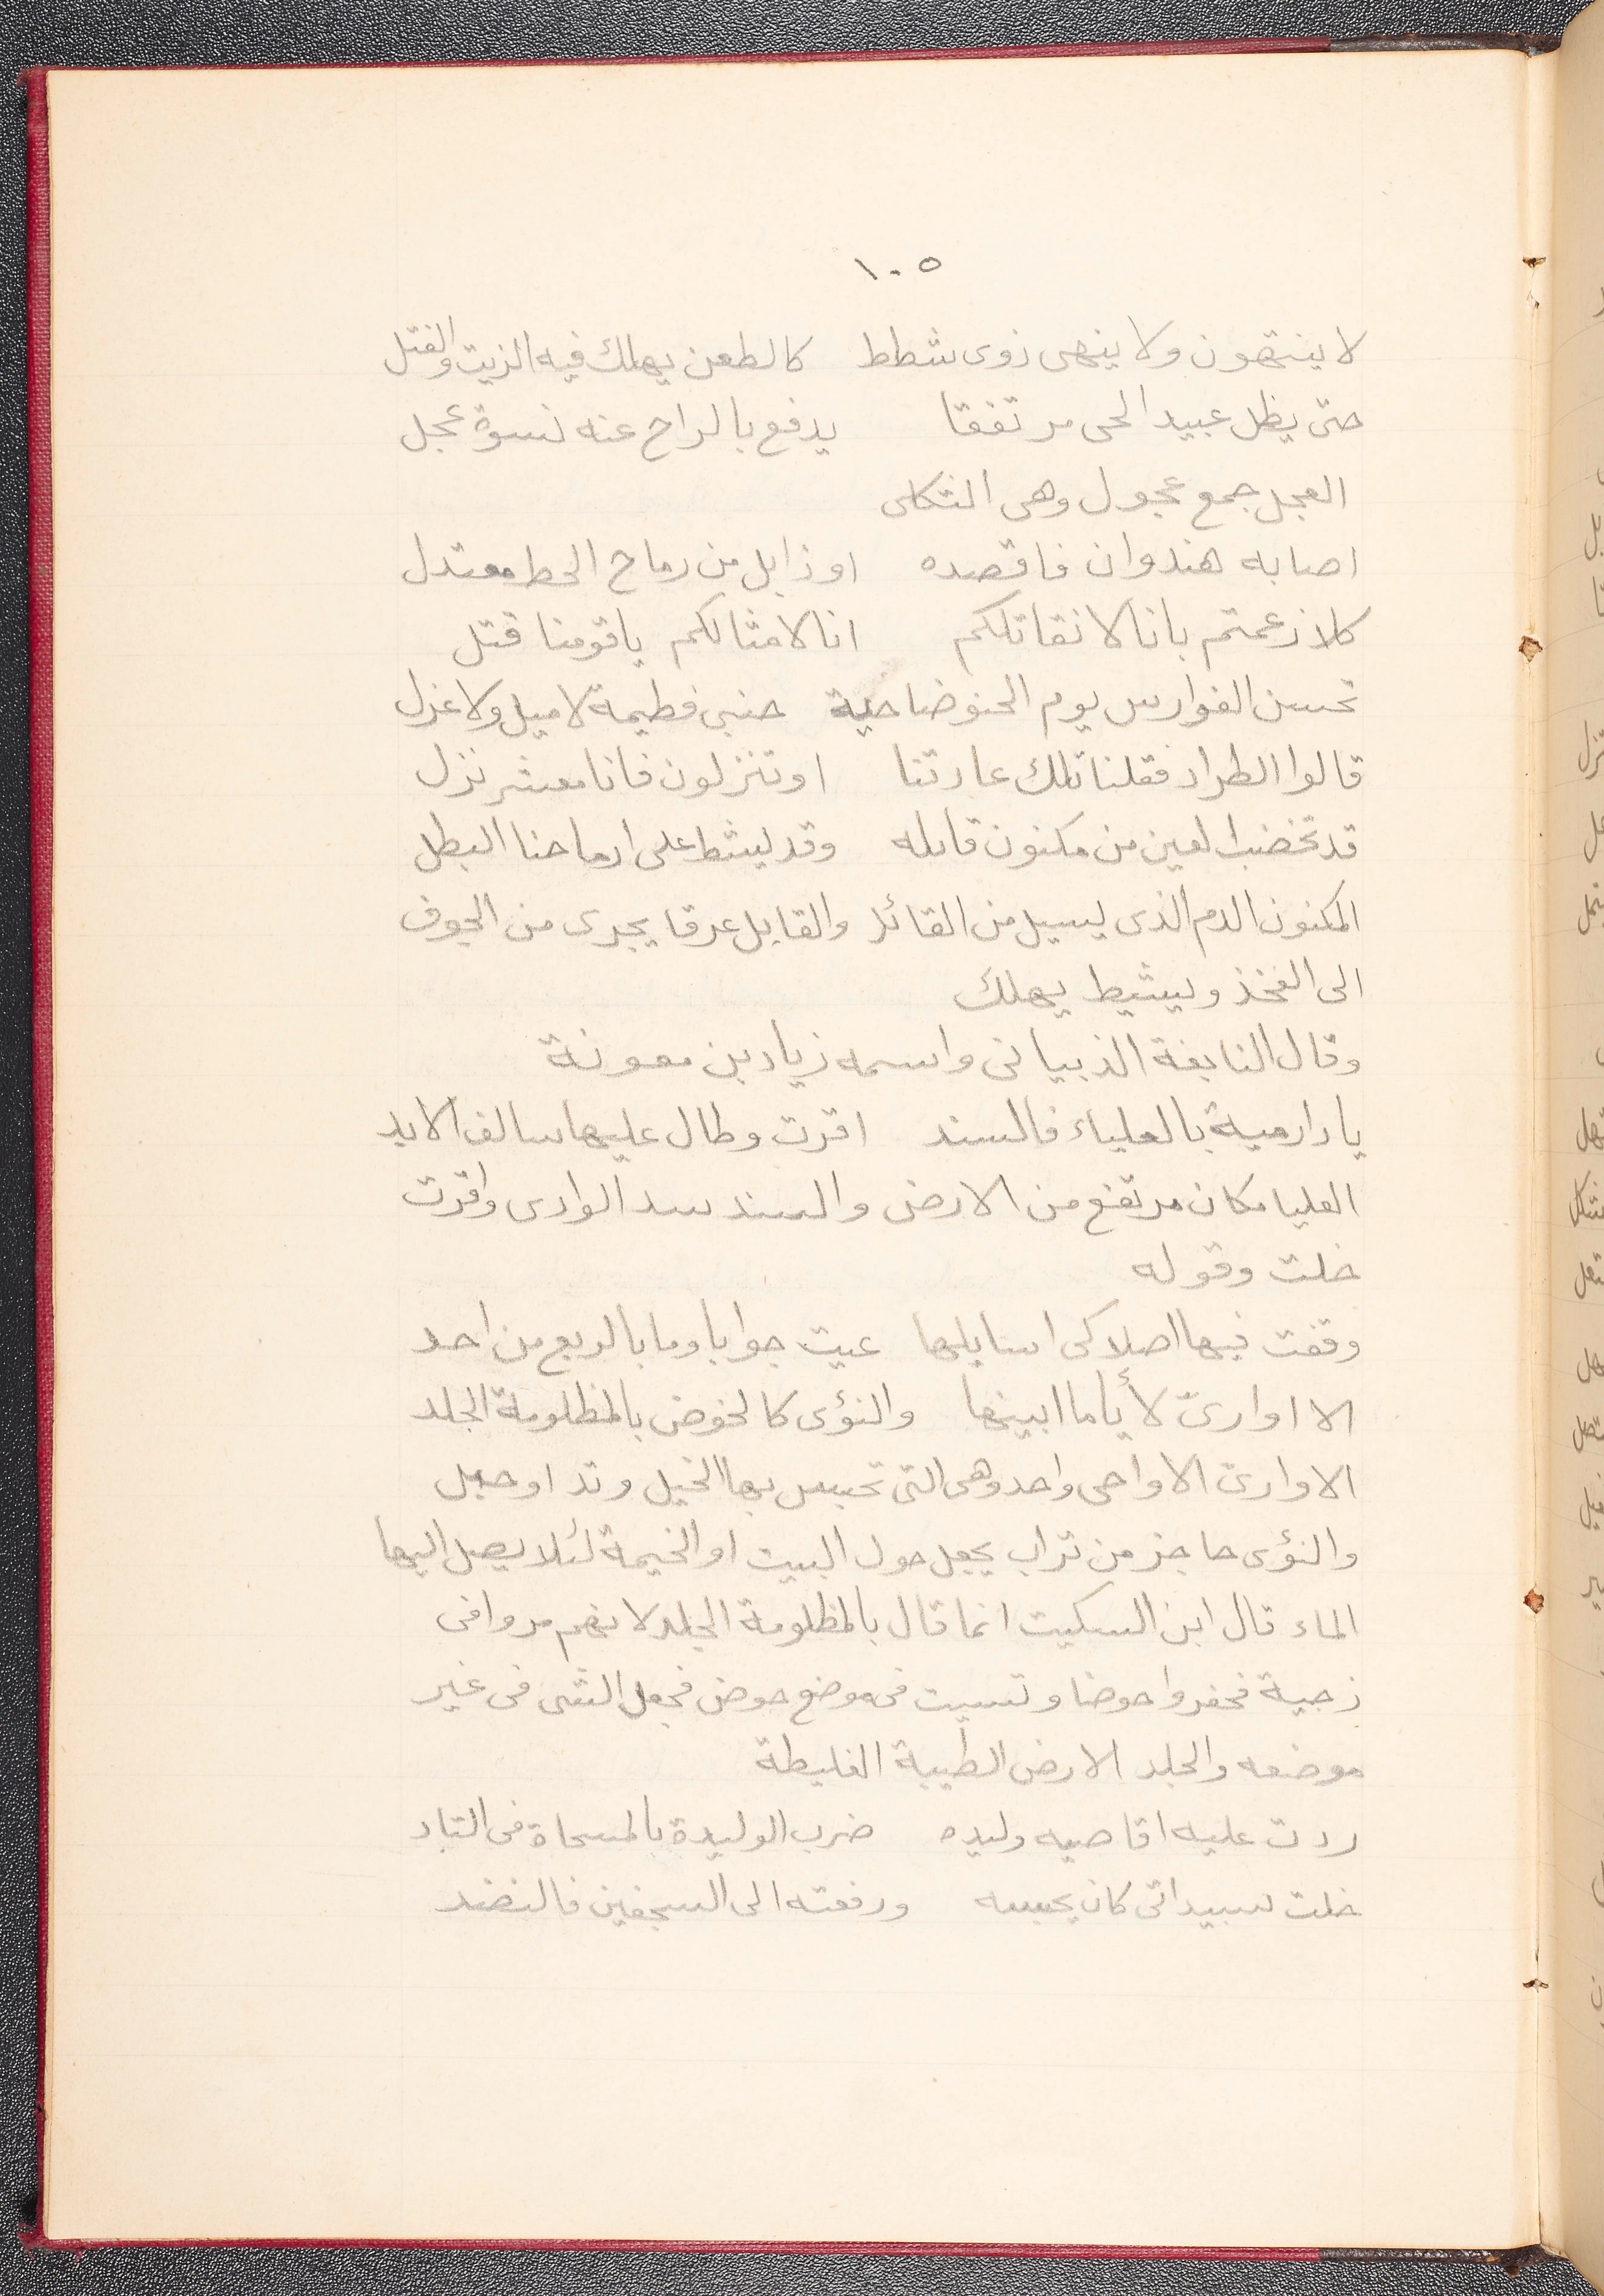 ١٠٥
لا ينتهون ولا ينهى ذوى شطط كالطعن يهلك فيه الزيت والفتل
حتى يظل عبيد الحى مرتفقا يدفع بالراح عنه نسوة عجل
العجل جمع عجول وهى الثكلى
اصابه هندوان فاقصده او ذابل من رماح الخط معتدل
كلا زعمتم بانا لا نقاتلكم انا لامثالكم ياقومنا قتل
نحسن الفوارس يوم الحنو ضاحية جنبى فطيمة لا ميل ولا غزل
قالوا الطراد فقلنا تلك عادتنا او تنزلون فانا معشر نزل
قد تخضب العين من مكنون قابله وقد يشط على ارماحنا البطل
المكنون الدم الذى يسيل من القائل والقابل عرقا يجرى من الجوف
الى الفخذ ويشيط يهلك
وقال النابغة الذبيانى واسمه زياد بن معونة
يا دار مية بالعلياء فالسند اقرت وطال عليها سالف الابد
العليا مكان مرتفع من الارض والسند سد الوادى واقرت
خلت وقوله
وقفت فيها اصلا كى اسايلها عيت جوابا وما بالربع من احد
الا اوارىّ لأياما ابينها والنؤى كالحوض بالمظلومة الجلد
الاوارىّ الاواحى واحد وهى التى تحبس بها الخيل وتد او حبل
والنؤى حاجز من تراب يجعل حول البيت او الخيمة لئلا يصل اليها
الماء قال ابن السكيت انما قال بالمظلومة الجلد لانهم مروا فى
زجية فحفروا حوضا وتسيت فى موضع حوض فجعل الشى فى غير
موضعه والجلد الارض الطيبة الغليظة
ردت عليه اقاصيه وليده ضرب الوليدة بالمسحاة فى الثاد
خلت سبيد اتى كان يحبسه ورفعته الى السجفين فالنضد